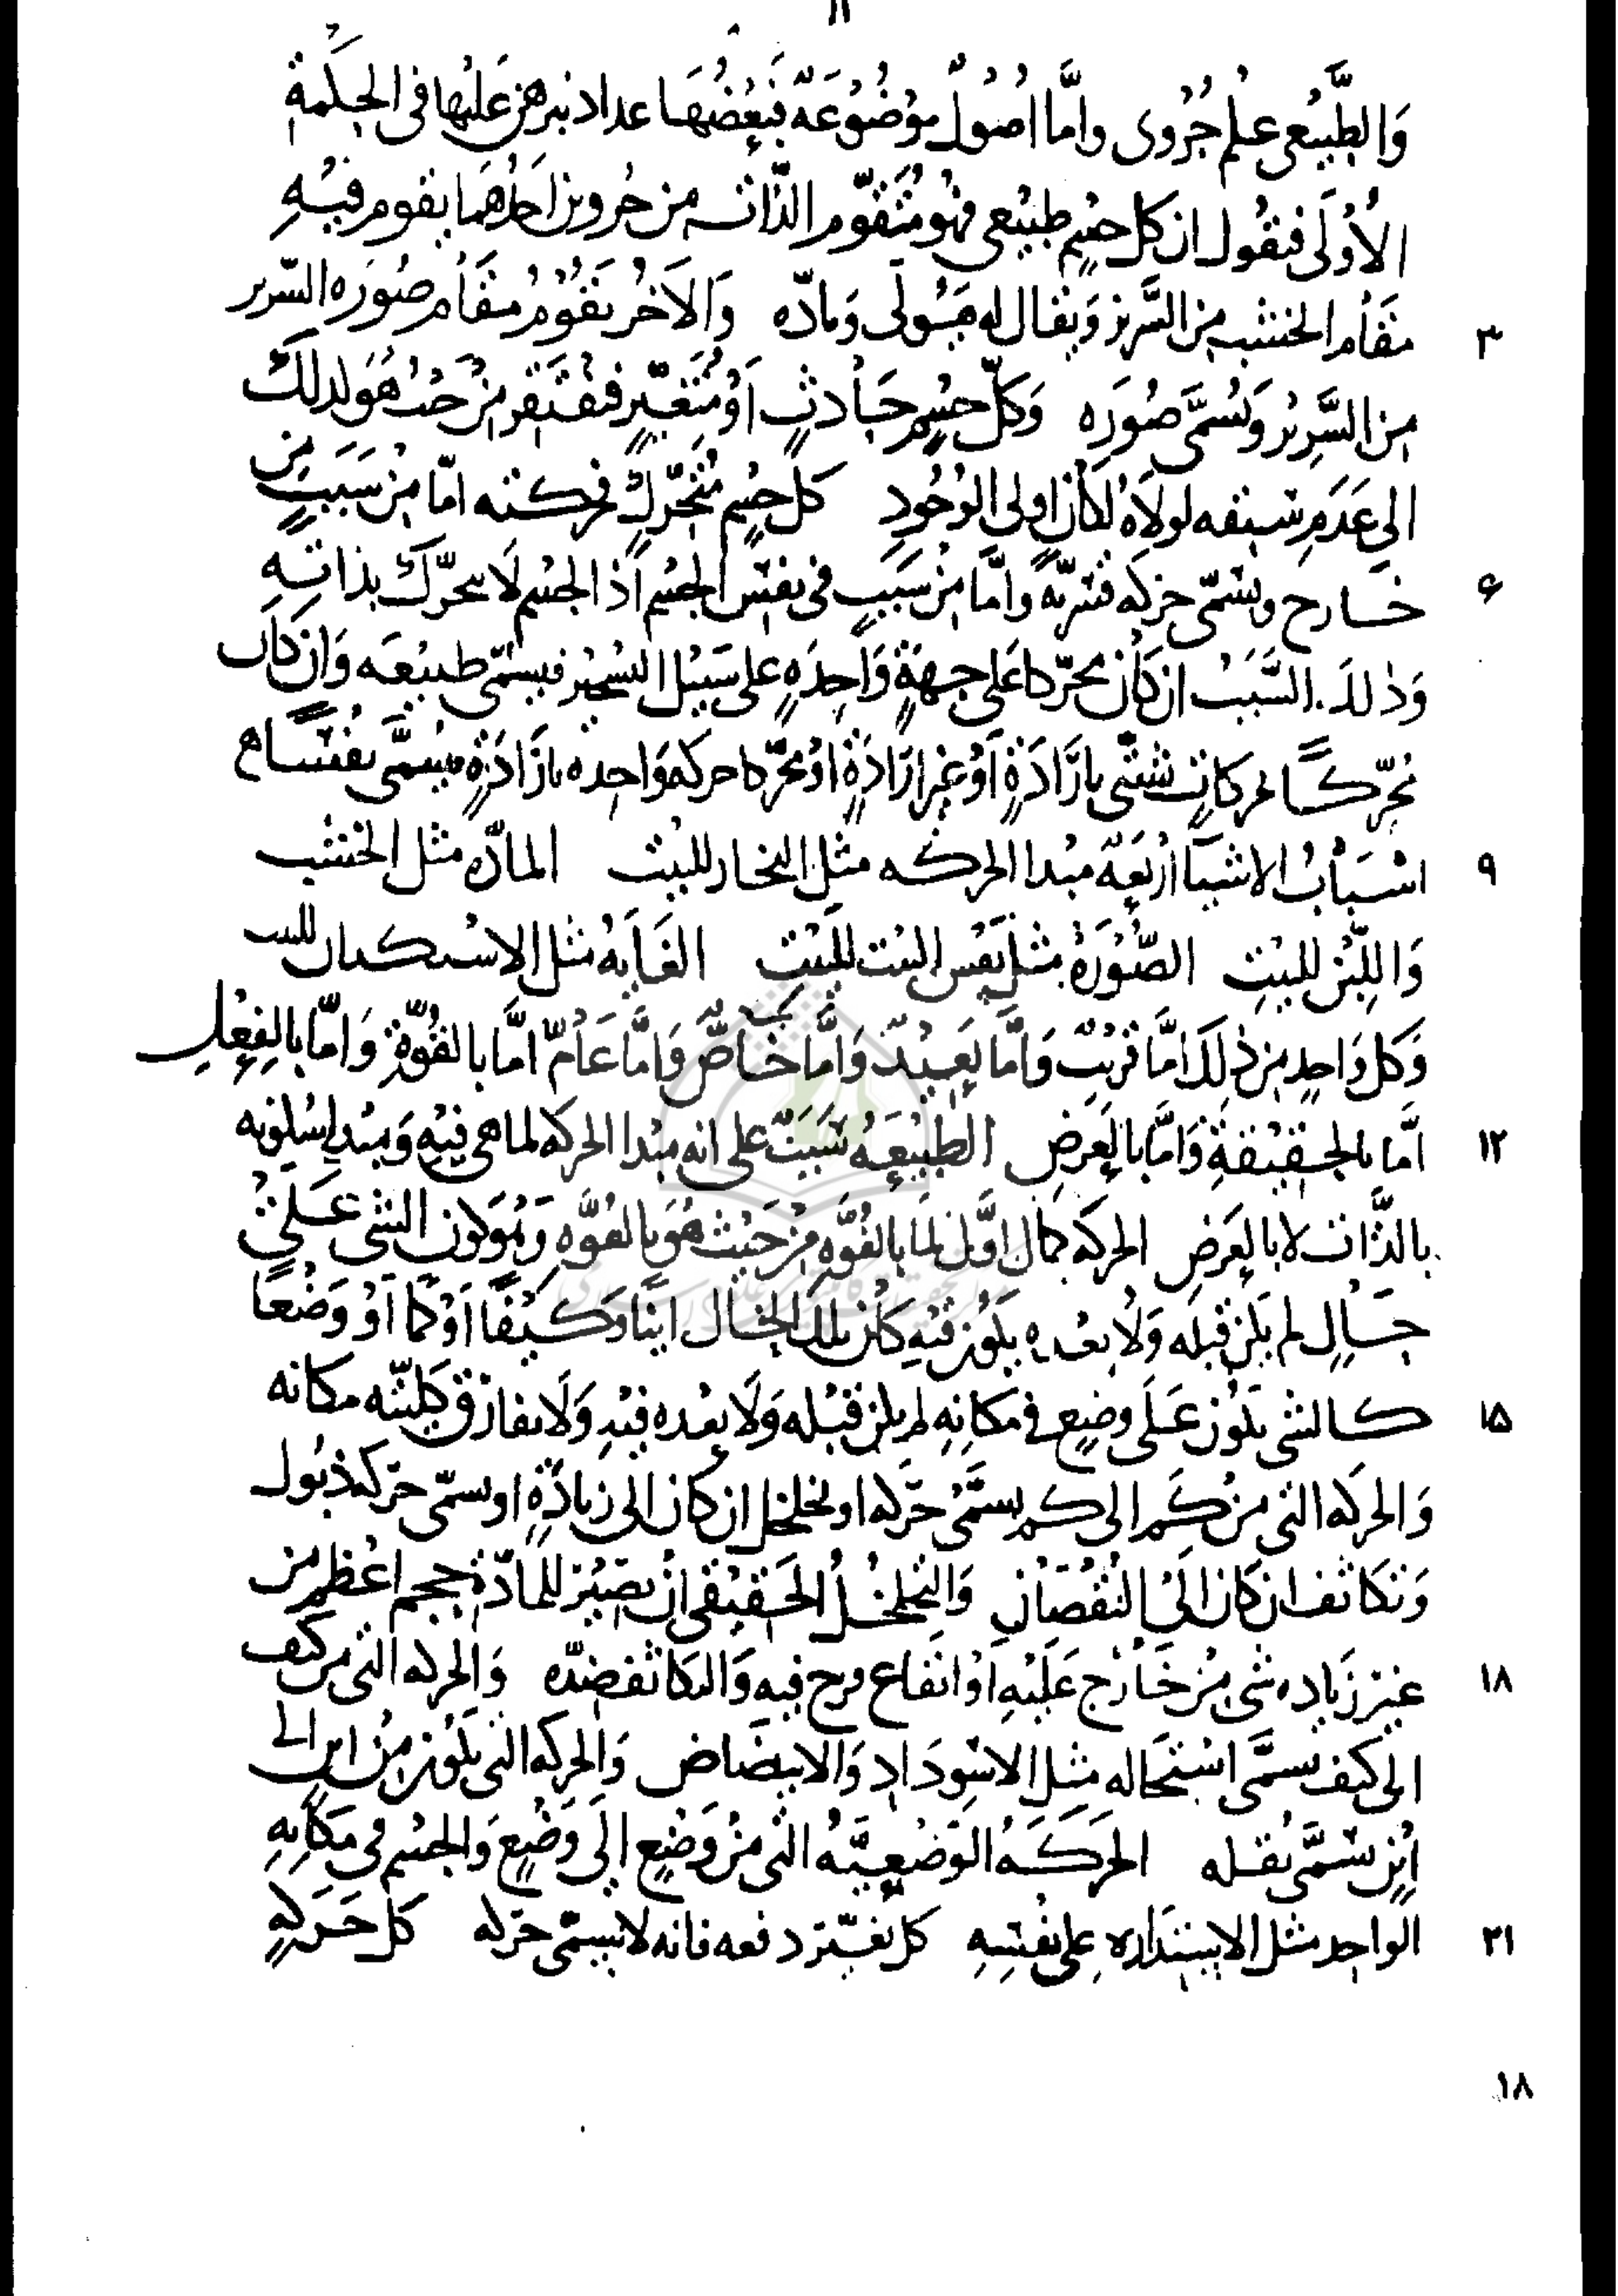 ١١
وَالطَّبيْعى علمٌ جُزْوى وامَّا اُصُولٌ مَوْضُوْعَةٌ فبَعْضُهَا عداد نبرهن عَليْها فى الحِكمةِ
الأوْلَى فنقُول ان كل جسْمٍ طبيْعى فهْو مُتَقوّم الذات من جزوين احَدُهَما يقوم فيْهِ
٣ مَقَاْم الخشب من السَّرير وَيقال له هَيُولَى وَمادّه وَالآخرُ يَقُوْمُ مقَاْم صُوَره السّرير
من السَّريْر وَيُسَمَّى صُوَرَه وَكلّ جسْمٍ حَاْدثٍ اَوْ مُتَغيّرٍ فيفتقر منْ حَيْث هُوَ لدلكَ
الى عَدَمٍ سَبقه لولاهُ لكَان ازلى الوُجُودِ كل جسْمٍ مُتحَرّكٍ فحركته امّا منْ سَبَبٍ منْ
٦ خَارجٍ وتسَمّى حركه قسْريّه وامَّا منْ سَبَبٍ فى نفسْ الجسْم اذ الجسْم لَا يتحرّك بذاتهِ
وَذٰلكَ السَّبَبْ ان كَاْن محرّكا عَلى جهةٍ وَاحِدَهٍ على سَبيْل التسْخير فيسمّى طبيْعَه وَان كَان
مُحرّكًا لحركاتٍ شتّى بارَادَةٍ اَوْ غيْرِ ارَادَةٍ اوْ محَرّكا حركه وَاحِده بارَادَةٍ فيسَمَّى نفْسًا ع
٩ اسْبَابُ الاشيَآ ارْبَعَة مبْدا الحركه مثل النجار للبيْت المادّه مثل الخشب
وَاللبْن للبيْتِ الصُّوْرَهُ مثل نفس البيْت للبيْت الغَايَهُ مثل الاسْتكنان للبيت
وَكل وَاحِدٍ من ذٰلكَ امَّا قرْيبٌ وَامَّا بَعيْدٌ وَامَّا خَاصٌّ وَامَّا عَاْمٌّ امَّا بالقُوّةِ وَامّا بالفِعْلِ
١٢ امَّا بالحقيْقةِ وَامَّا بالعَرَضِ الطبيْعَهُ سَبَبٌ على انه مبْدا الحركه لما هى فيْهِ وَمبْدا لسُكونه
بالذات لا بالعَرَضِ الحركه كمال اوَّل لمَا بالقُوَّهِ منْ حَيْث هُوَ بالقوَّهِ وَهُوَ كون الشى عَلَىْ
حَاْلٍ لم يكن قبْله وَلَا بعْده يكوْن فيْهِ كان تلكَ الحَال اينًا وَكيْفًا اَوْ كمًّا اَوْ وَضْعًا
١٥ كالشى يكوْن عَلَى وضعٍ فى مكانهِ لم يكن قبْله وَلَا بعْده فيْهِ وَلَا يفارق كليّته مكانه
وَالحركه التى منْ كَم الى كم يسَمَّىْ حَرَكه او تخلخل ان كان الى زيادَةٍ او يسمّى حَرَكه ذبُول
وَتكاثف ان كان الَىْ النُقْصَان وَالتخَلخُلُ الحَقيْقى انْ يَصيْر للمادّةِ حجم اعْظم من
١٨ غيْر زيَاده شى منْ خَارجٍ عَلَيْهِ اَوْ انفاع فرجٍ فيهِ وَالتكاثف ضِدّه وَالحركه التى من كيف
الى كيف تسمَّى اسْتحَاله مثل الاسْودَاد وَالابيضَاض وَالحركه التى يَكوْن منْ اينٍ الى
ايْنٍ تسَمَّى نقله الحَرَكَهُ الوَضْعِيَّهُ التى منْ وَضْعٍ الى وَضْعٍ وَالجسْم فى مَكَانِهِ
٢١ الواحِد مثل الاستدَاره على نفْسِهِ كل تغيّر دفعه فانه لا يسَمّى حَرَكه كل حَرَكهٍ
١٨